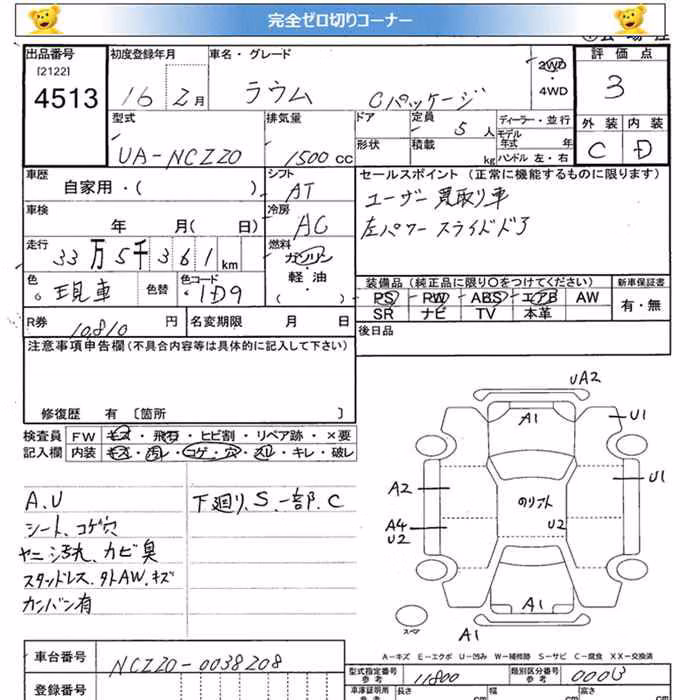 完全ゼロ切りコーナー
出品番号
[2122]
4513
初度登録年月
16 2月
車名・グレード
ラウム Cパッケージ
2WD
・
4WD
評価点
3
外装 内装
C D
型式
UA-NCZ20
排気量
1500cc
ドア
形状
定員 5人
積載 kg
ディーラー・並行
モデル
年式 年
ハンドル 左・右
車歴
自家用・( )
シフト
AT
セールスポイント(正常に機能するものに限ります)
ユーザー買取り車
左パワースライドドア
車検
年 月( 日)
冷房
AC
走行
33万5千361km
燃料
ガソリン
・
軽・油
( )
色
現車
色替
色コード
1D9
装備品(純正品に限り○をつけてください)
PS PW ABS エアB AW
SR ナビ TV 本革
新車保証書
有・無
R券
10810円
名変期限 月 日
後日品
注意事項申告欄(不具合内容等は具体的に記入して下さい)
修復歴 有 〔箇所 〕
検査員
記入欄
FW キズ・飛石・ヒビ割・リペア跡・×要
内装 キズ・汚レ・コゲ・穴・スレ・キレ・破レ
A.U
シート、コゲ穴
ヤニ汚れ、カビ臭
スタッドレス、タトAW、キズ
カンバン有
下廻り、S、一部、C
UA2
A1
U1
A2
U1
A4
U2
のりフト
U2
A1
A1
スペア
A－キズ E－エクボ U－凹み W－補修跡 S－サビ C－腐食 XX－交換済
車台番号
NCZ20-0038208
登録番号
型式指定番号
参考
11800
類別区分番号
参考
車庫証明用
参考
長さ cm
幅 cm
高さ cm